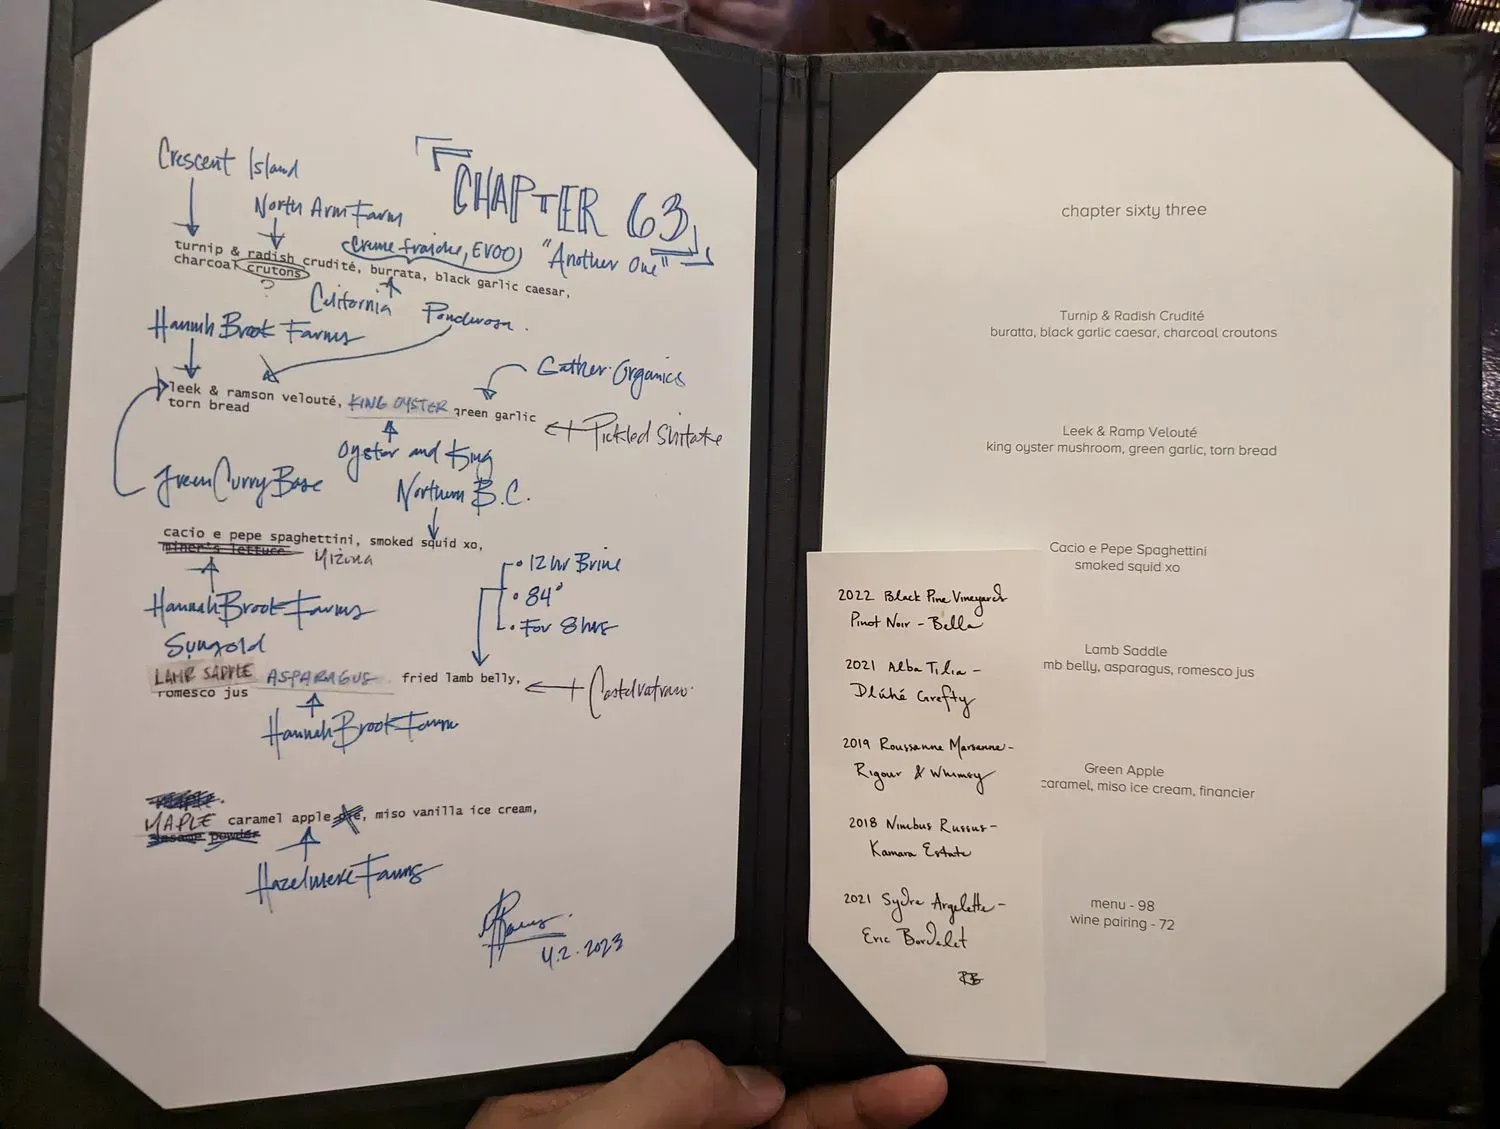 Crescent Island
North Arm Farm
『CHAPTER 63』
"Another One"
Creme fraiche, EVOO
turnip & radish crudité, burrata, black garlic caesar,
charcoal crutons
?
California
Ponderosa.
Hannah Brook Farms
Gather Organics
leek & ramson velouté, KING OYSTER green garlic
torn bread
Pickled Shitake
Oyster and King
Green Curry Base
Northern B.C.
cacio e pepe spaghettini, smoked squid xo,
miner's lettuce Mizuna
• 12 hr Brine
• 84°
• For 8 hrs
Hannah Brook Farms
Sungold
LAMB SADDLE ASPARAGUS fried lamb belly,
romesco jus
Castelvatrano.
Hannah Brook Farm
MAPLE caramel apple pie, miso vanilla ice cream,
sesame powder
Hazelmere Farms
4.2.2023
chapter sixty three
Turnip & Radish Crudité
buratta, black garlic caesar, charcoal croutons
Leek & Ramp Velouté
king oyster mushroom, green garlic, torn bread
Cacio e Pepe Spaghettini
smoked squid xo
Lamb Saddle
mb belly, asparagus, romesco jus
Green Apple
caramel, miso ice cream, financier
menu - 98
wine pairing - 72
2022 Black Pine Vineyards
Pinot Noir - Bella
2021 Alba Tilia -
Dlúhé Grefty
2019 Roussanne Marsanne -
Rigour & Whimsy
2018 Nimbus Russus -
Kamara Estate
2021 Sydre Argelette -
Eric Bordelet